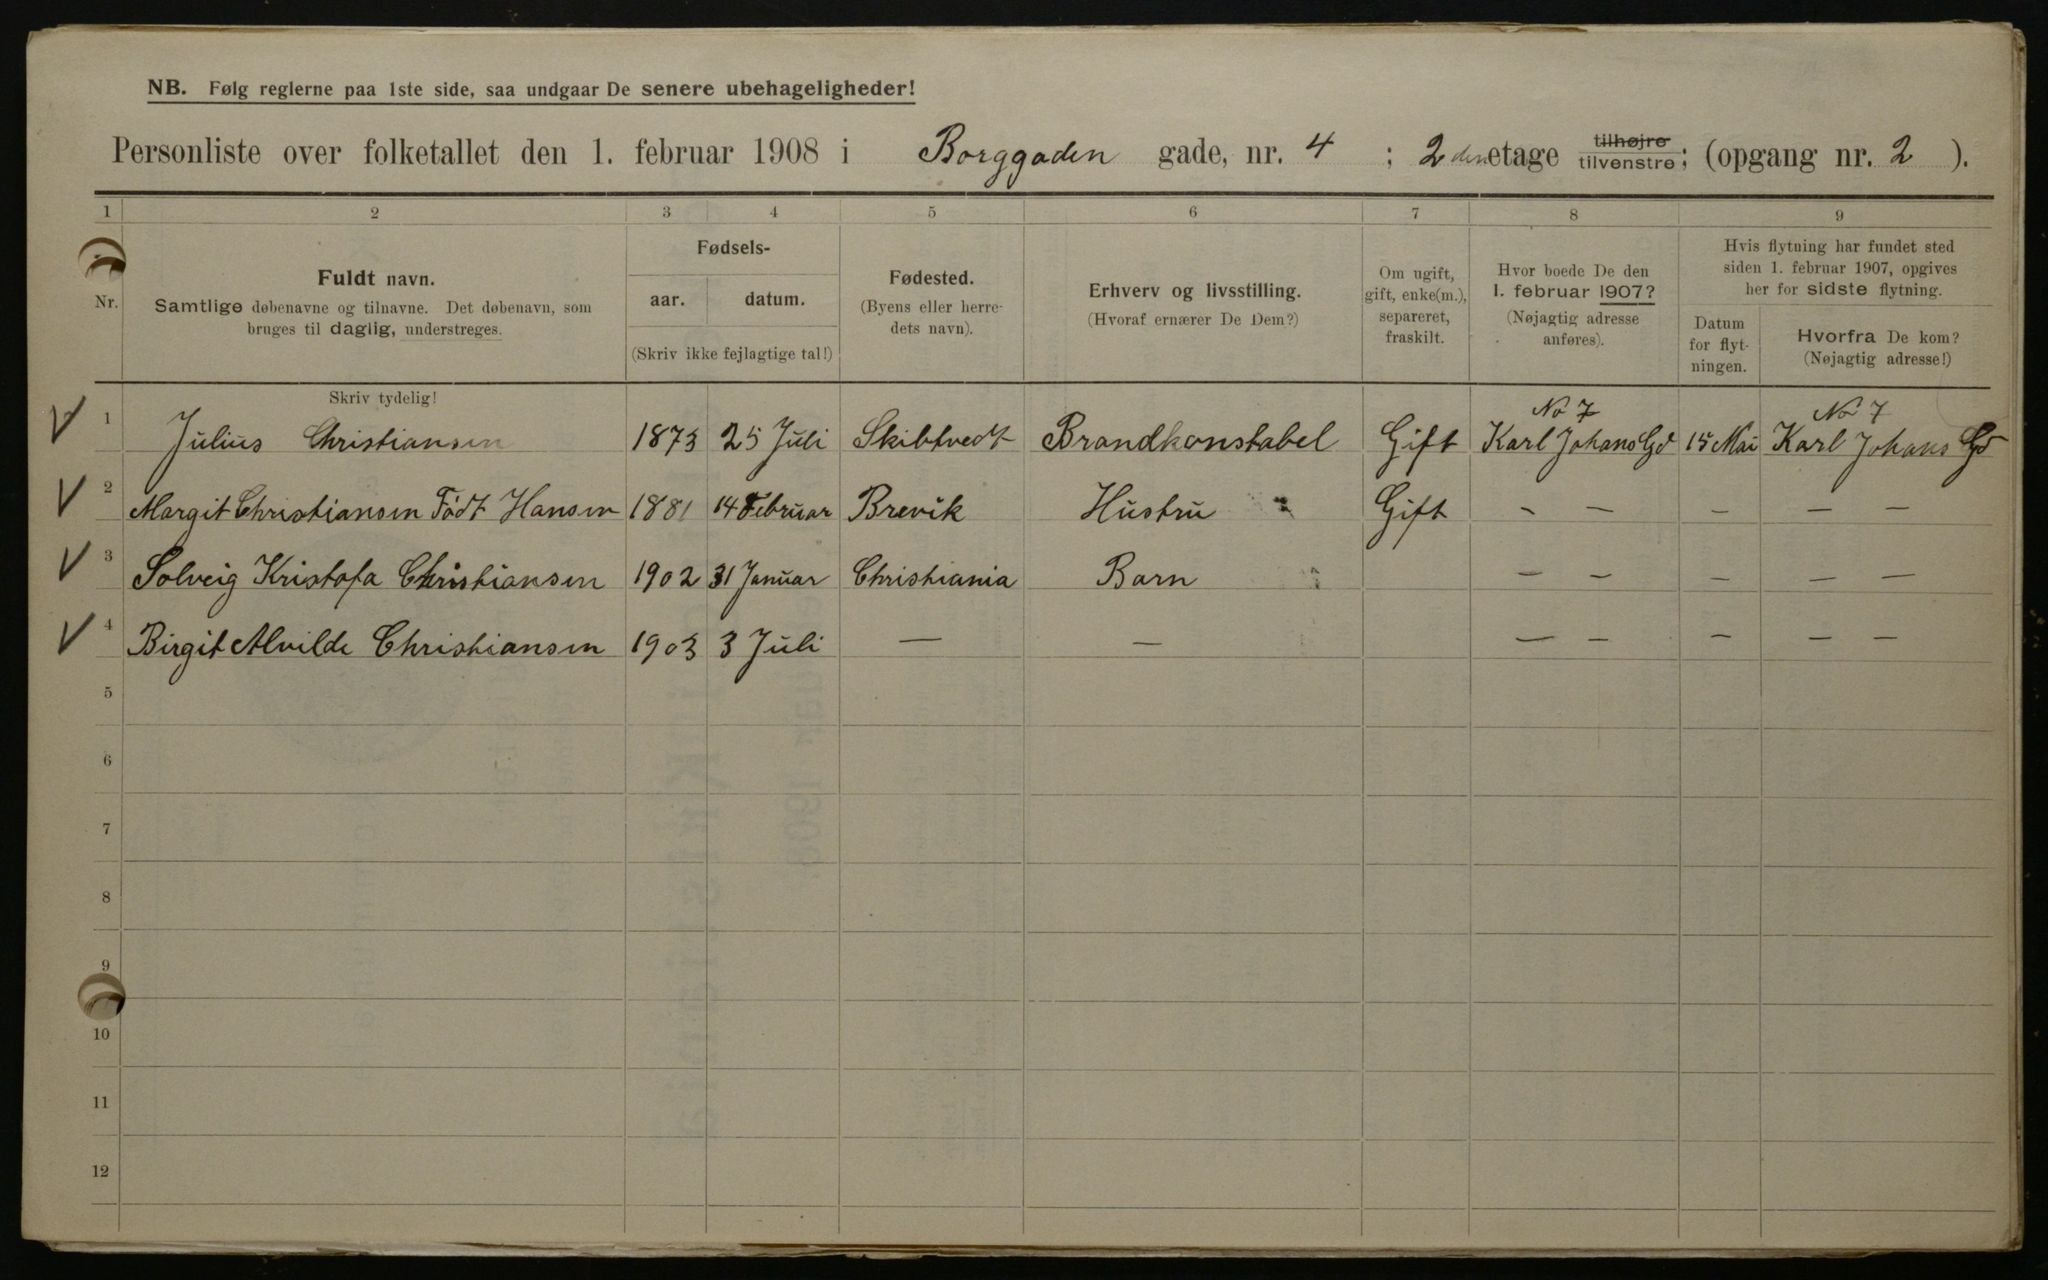 NB. Følg reglerne paa 1ste side, saa undgaar De senere ubehageligheder!
Personliste over folketallet den 1. februar 1908 i Borggaden gade, nr. 4 ; 2den etage tilhøjre tilvenstre; (opgang nr. 2 ).
1 2 3 4 5 6 7 8 9
Nr.
Fuldt navn.
Samtlige døbenavne og tilnavne. Det døbenavn, som
bruges til daglig, understreges.
Fødsels-
aar. datum.
(Skriv ikke fejlagtige tal!)
Fødested.
(Byens eller herre-
dets navn).
Erhverv og livsstilling.
(Hvoraf ernærer De Dem?)
Om ugift,
gift, enke(m.),
separeret,
fraskilt.
Hvor boede De den
1. februar 1907?
(Nøjagtig adresse
anføres).
Hvis flytning har fundet sted
siden 1. februar 1907, opgives
her for sidste flytning.
Datum
for flyt-
ningen.
Hvorfra De kom?
(Nøjagtig adresse!)
Skriv tydelig!
No 7 No 7
1 Julius Christiansen 1873 25 Juli Skibtvedt Brandkonstabel Gift Karl Johans Gd 15 Mai Karl Johans Gd
2 Margit Christiansen Födt Hansen 1881 14 Februar Brevik Hustru Gift — — — — —
3 Solveig Kristofa Christiansen 1902 31 Januar Christiania Barn — — — — —
4 Birgit Alvilde Christiansen 1903 3 Juli — — — — — — —
5
6
7
8
9
10
11
12